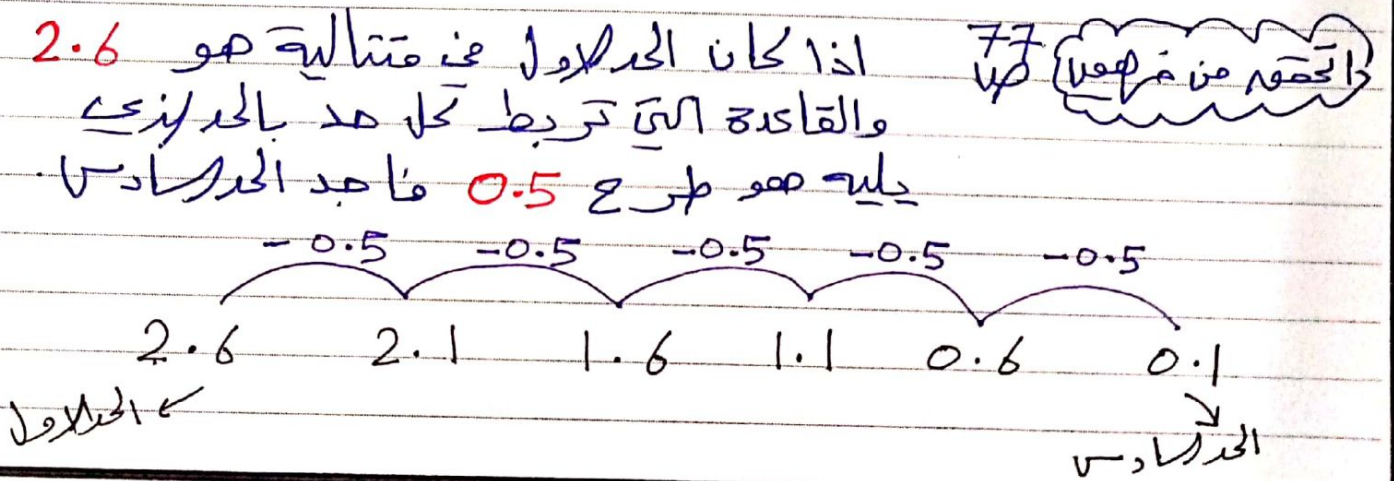 أتحقق من فهمي ص 77
اذا كان الحد الاول في متتالية هو 2.6
والقاعدة التي تربط كل حد بالحد الذي
يليه هو طرح 0.5 فاجد الحد السادس.
-0.5 -0.5 -0.5 -0.5 -0.5
2.6 2.1 1.6 1.1 0.6 0.1
الحد الاول
الحد السادس